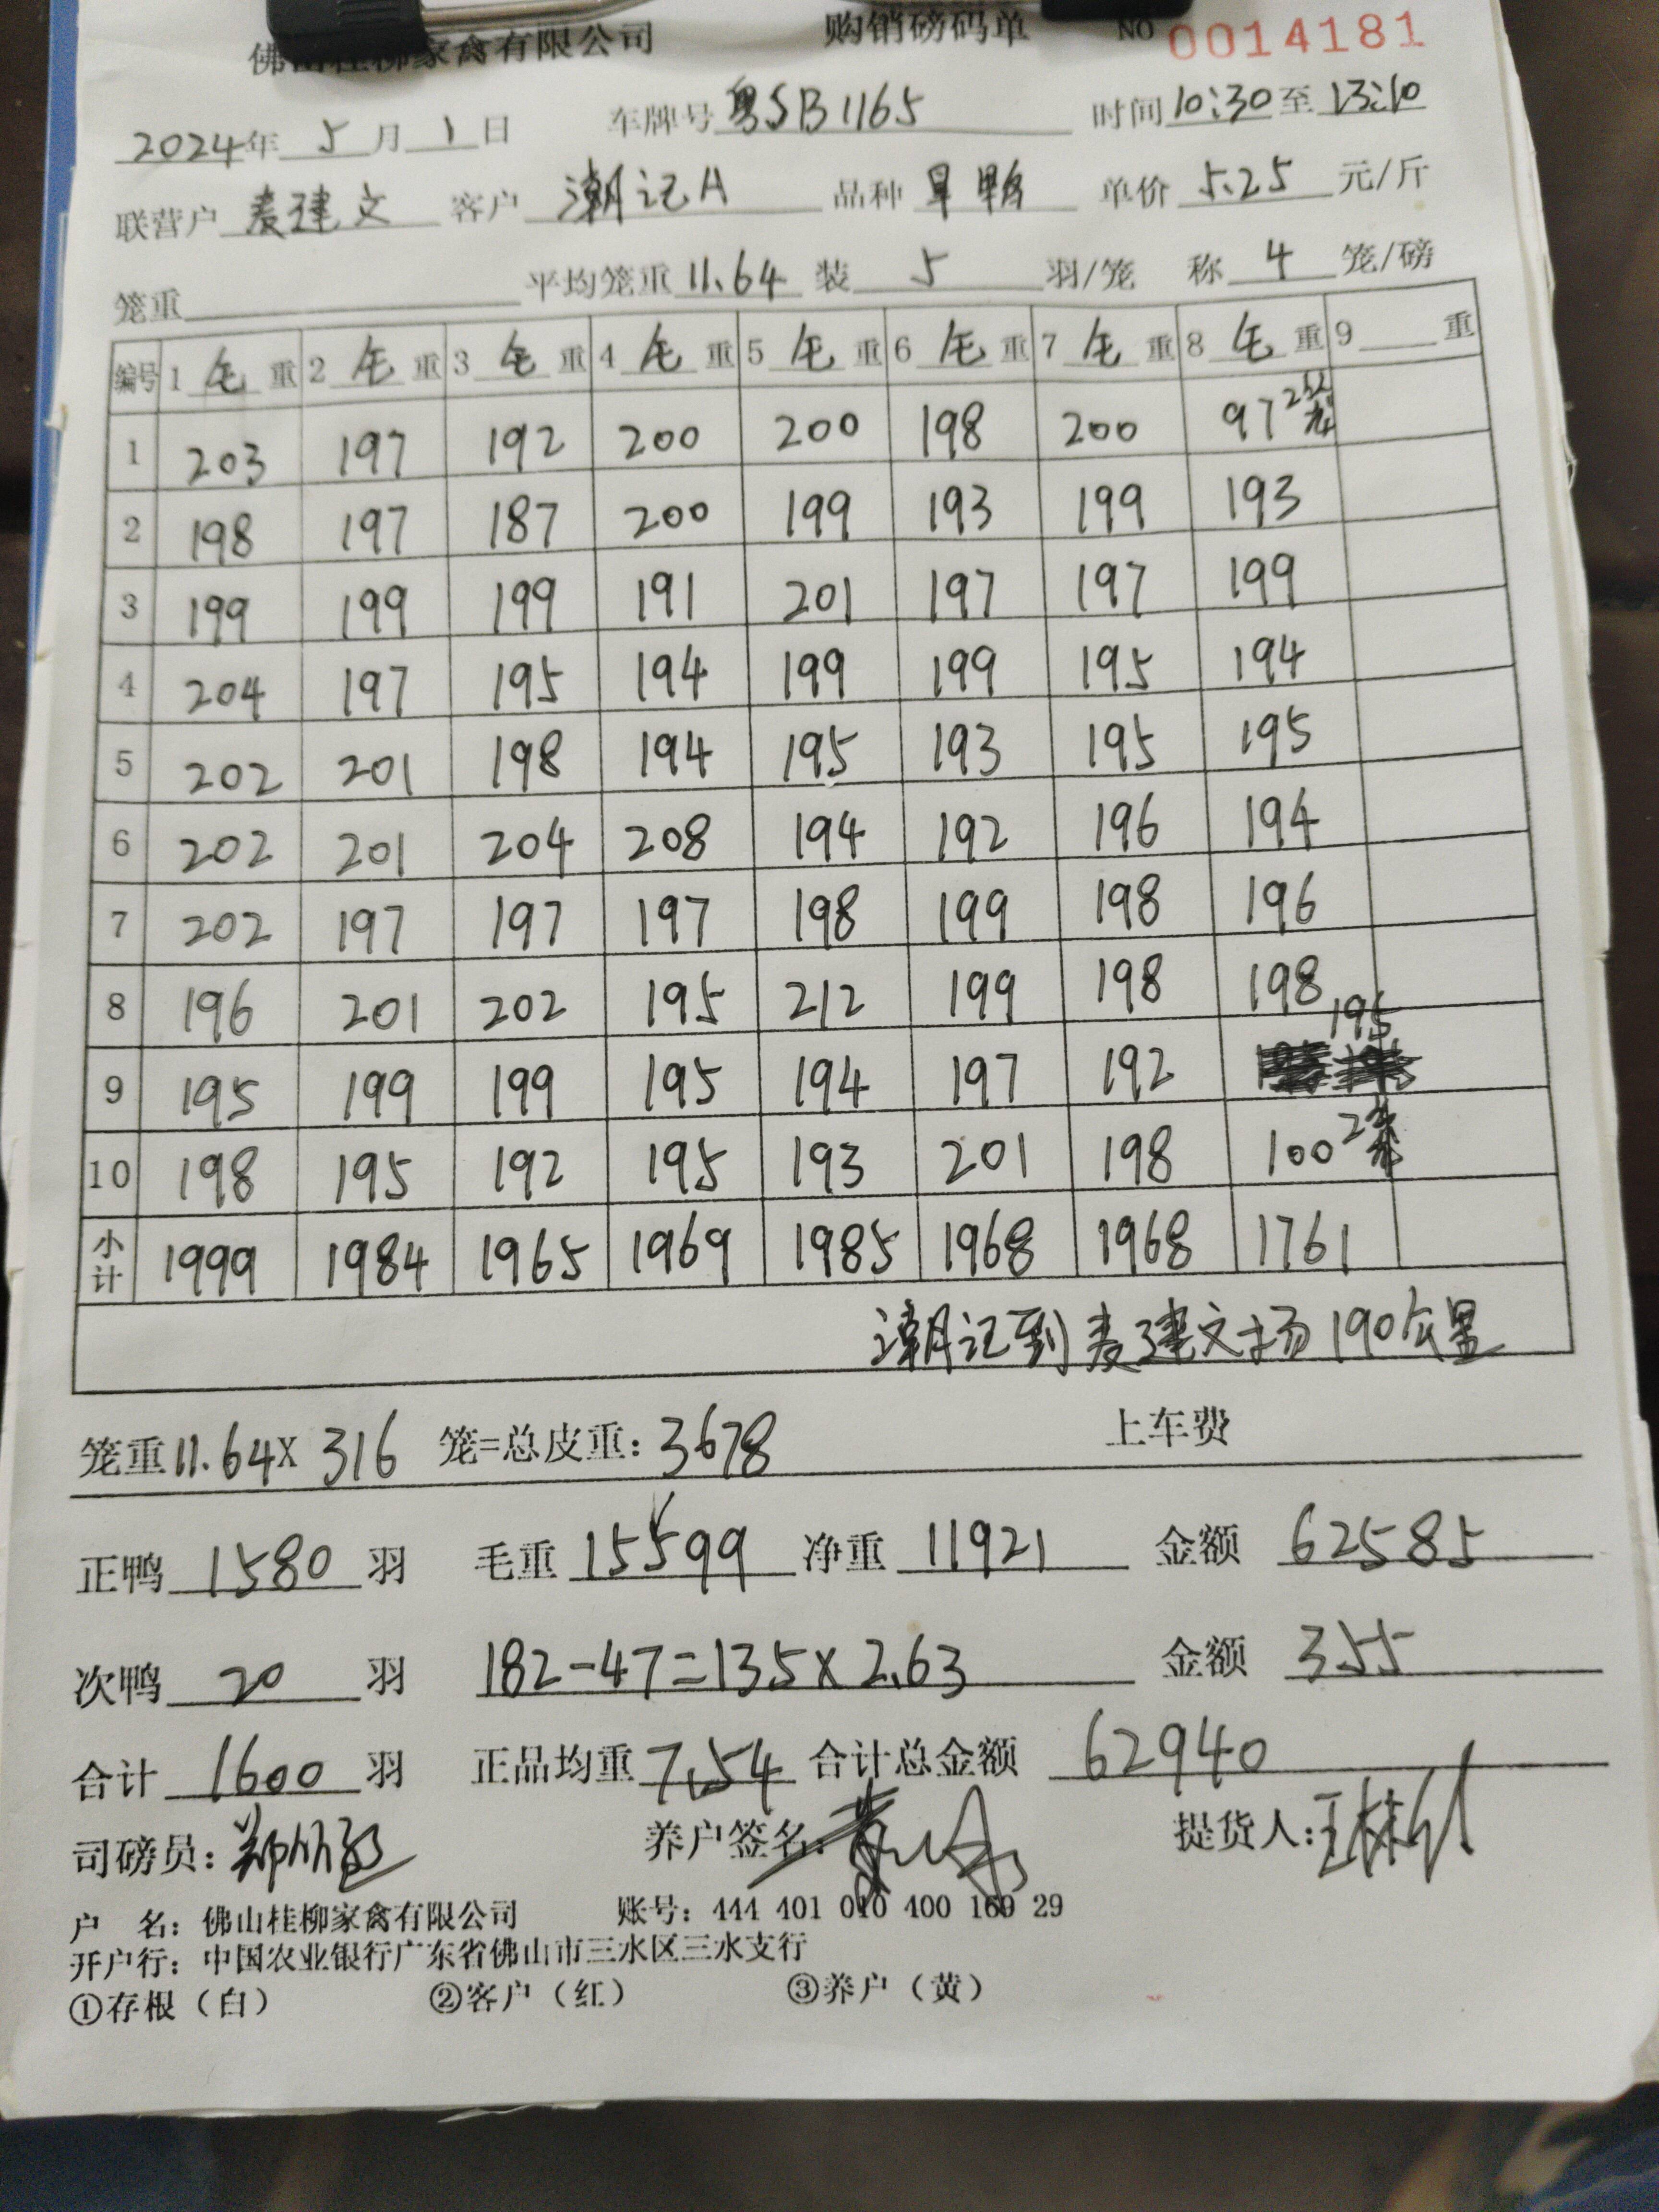 佛山桂柳家禽有限公司 购销磅码单 NO 0014181
2024年 5月 1日 车牌号 粤SB1165 时间 10:30 至 13:10
联营户 麦建文 客户 潮记A 品种 旱鸭 单价 5.25 元/斤
笼重 平均笼重 11.64 装 5 羽/笼 称 4 笼/磅
编号 1 毛 重 2 毛 重 3 毛 重 4 毛 重 5 毛 重 6 毛 重 7 毛 重 8 毛 重 9 重
1 203 197 192 200 200 198 200 97 2笼
2 198 197 187 200 199 193 199 193
3 199 199 199 191 201 197 197 199
4 204 197 195 194 199 199 195 194
5 202 201 198 194 195 193 195 195
6 202 201 204 208 194 192 196 194
7 202 197 197 197 198 199 198 196
8 196 201 202 195 212 199 198 198
9 195 199 199 195 194 197 192 195
10 198 195 192 195 193 201 198 100 2笼
小计 1999 1984 1965 1969 1985 1968 1968 1761
潮记到麦建文场190公里
笼重 11.64 X 316 笼=总皮重: 3678 上车费
正鸭 1580 羽 毛重 15599 净重 11921 金额 62585
次鸭 20 羽 182-47=135×2.63 金额 355
合计 1600 羽 正品均重 7.54 合计总金额 62940
司磅员: 养户签名: 提货人:
户 名: 佛山桂柳家禽有限公司 账号: 444 401 010 400 169 29
开户行: 中国农业银行广东省佛山市三水区三水支行
①存根(白) ②客户(红) ③养户(黄)